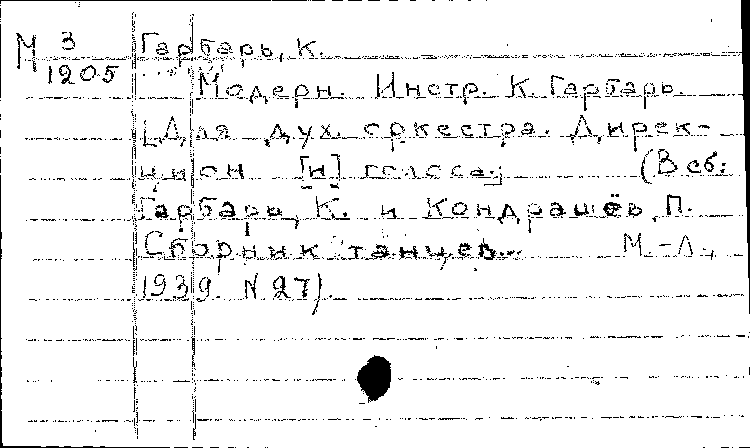 М 3
1205
Гарбарь, К.
Модерн. Инстр. К. Гарбарь.
[Для дух. оркестра. Дирек-
цион [и] голоса.] (В сб:
Гарбарь, К. и Кондрашёв, П.
Сборник танцев... М.-Л.,
1939. N 27).